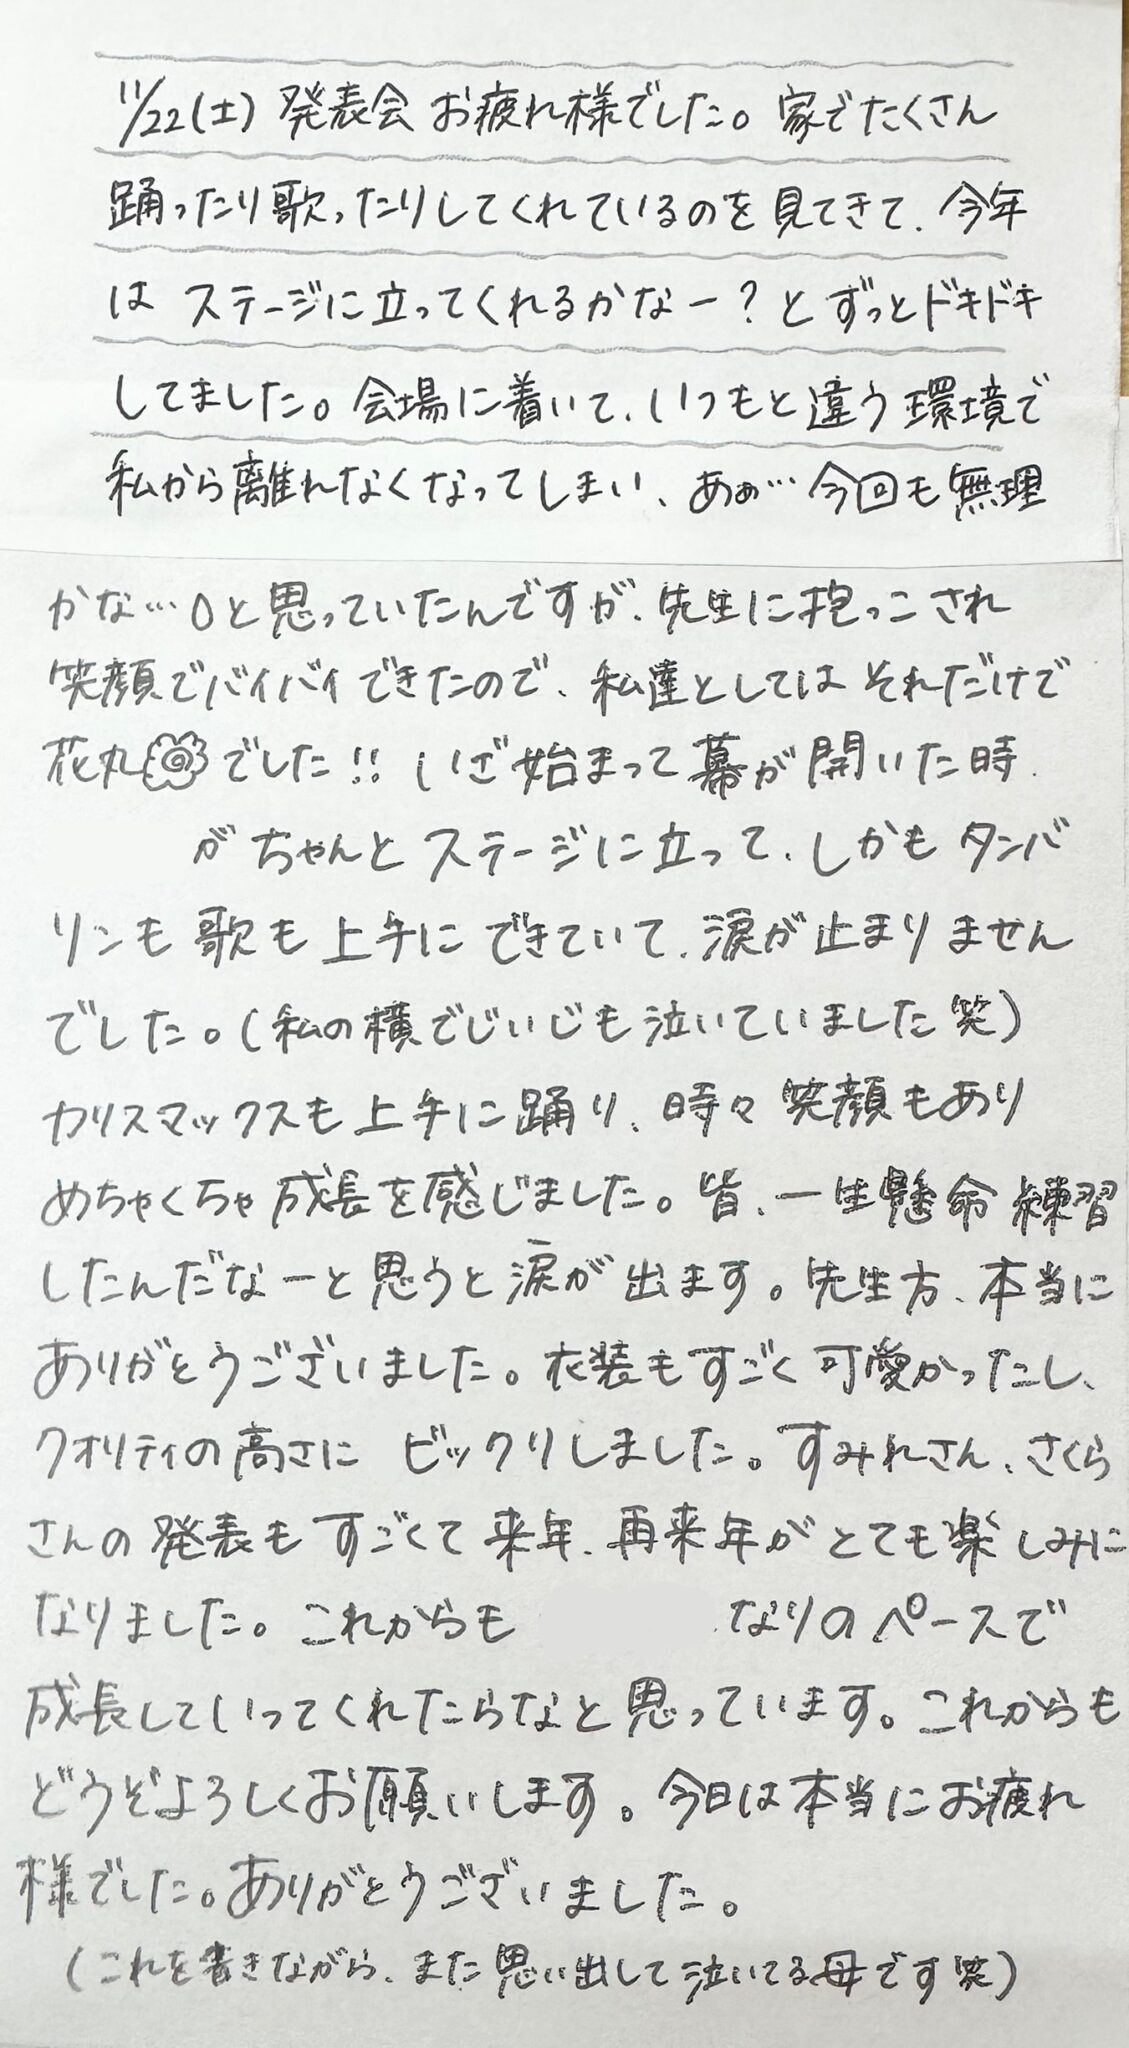 11/22(土) 発表会 お疲れ様でした。家でたくさん
踊ったり歌ったりしてくれているのを見てきて、今年
は ステージに立ってくれるかなー?とずっとドキドキ
してました。会場に着いて、いつもと違う環境で
私から離れなくなってしまい、あぁ…今回も無理
かな…。と思っていたんですが、先生に抱っこされ
笑顔でバイバイできたので、私達としてはそれだけで
花丸でした!! いざ始まって幕が開いた時、
がちゃんとステージに立って、しかもタンバ
リンも歌も上手にできていて、涙が止まりません
でした。(私の横でじぃじも泣いていました笑)
カリスマックスも上手に踊り、時々笑顔もあり
めちゃくちゃ成長を感じました。皆、一生懸命練習
したんだなーと思うと涙が出ます。先生方、本当に
ありがとうございました。衣装もすごく可愛かったし、
クオリティの高さに ビックリしました。すみれさん、さくら
さんの発表もすごくて来年、再来年がとても楽しみに
なりました。これからも なりのペースで
成長していってくれたらなと思っています。これからも
どうぞよろしくお願いします。今日は本当にお疲れ
様でした。ありがとうございました。
(これを書きながら、また思い出して泣いてる母です笑)